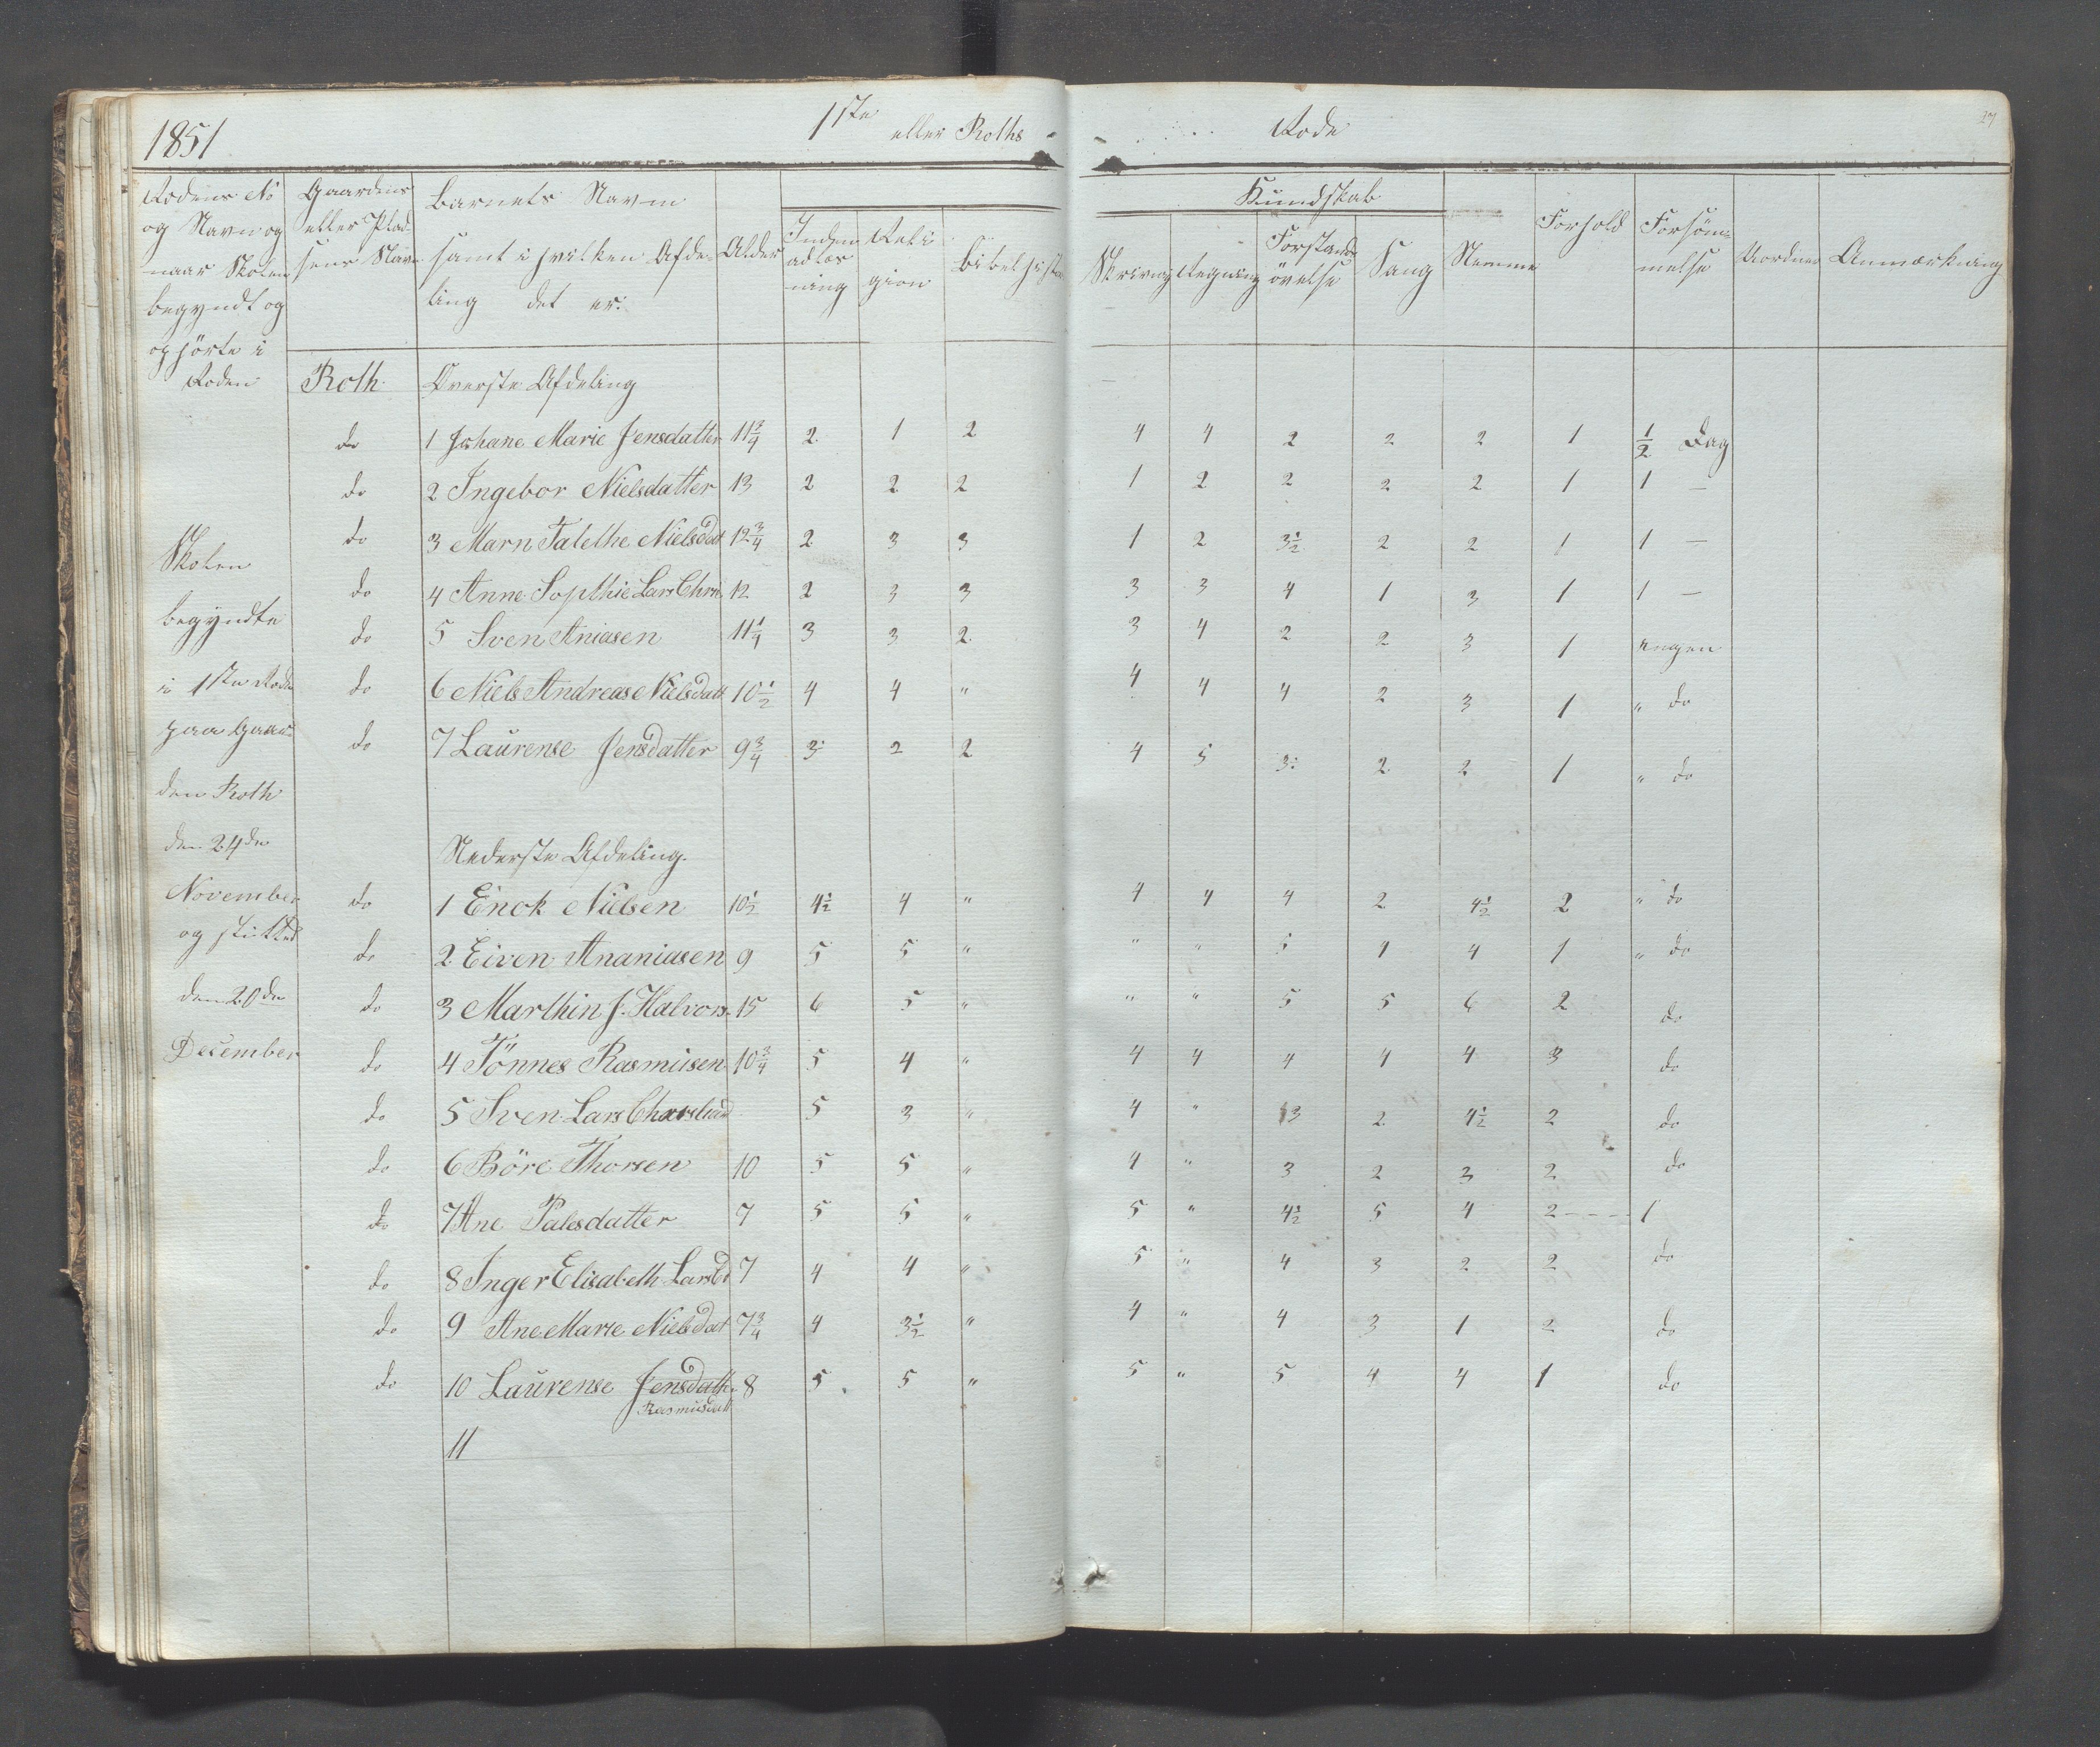 1851
1ste eller Roths
Rode
27
Rodens No og Navn og naar Skolen begyndt og ophörte i Roden
Gaardens eller Pladsens Navn
Barnets Navn samt i hvilken Afdeling det er:
Alder
Kundskab
Inden adlæsning
Religion
Bibelhistorie
Skrivning
Regning
Forstands övelse
Sang
Nemme
Forhold
Forsömmelse
Uorden
Anmærkning
Roth Överste Afdeling
do 1 Johane Marie Jensdatter 11 3/4 2 1 2 4 4 2 2 2 1 1/2 Dag
do 2 Ingebor Nielsdatter 13 2 2 2 1 2 2 2 2 1 1 —
do 3 Marn Talethe Nielsdat 12 3/4 2 3 3 1 2 3 1/2 2 2 1 1 —
do 4 Anne Sopthie Lars Chri 12 2 3 3 3 3 4 1 3 1 1 —
do 5 Sven Aniasen 11 1/4 3 3 2 3 4 2 2 3 1 ingen
do 6 Niels Andreas Nielsdatt 10 1/2 4 4 " 4 4 4 2 3 1 " do
do 7 Laurense Jensdatter 9 3/4 3 2 2 4 5 3 2 2 1 " do
Skolen
begyndte
i 1ste Rode
paa Gaar
den Roth
den 24de
November
og slutted
den 20de
December
Nederste Afdeling.
do 1 Enok Nielsen 10 1/2 4 1/2 4 " 4 4 4 2 4 1/2 2 " do
do 2 Eiven Ananiasen 9 5 5 " " " 5 4 4 1 " do
do 3 Marthin J. Halvors. 15 6 5 " " " 5 5 6 2 do
do 4 Tönnes Rasmusen 10 3/4 5 4 " 4 4 4 4 4 3 do
do 5 Sven Lars 5 3 " 4 " 3 2 4 1/2 2 do
do 6 Böre Thorsen 10 5 5 " 4 " 3 2 3 2 do
do 7 Ane Palesdatter 7 5 5 " 5 " 4 1/2 5 4 2 - - - 1
do 8 Inger Elisabeth Lars 7 4 4 " 5 " 4 3 2 2 do
do 9 Ane Marie Nielsdat 7 3/4 4 3 1/2 " 4 " 4 3 1 2 do
do 10 Laurense Jensdatt. 8 5 5 " 5 " 5 4 4 1 do
Rasmusdatt
11